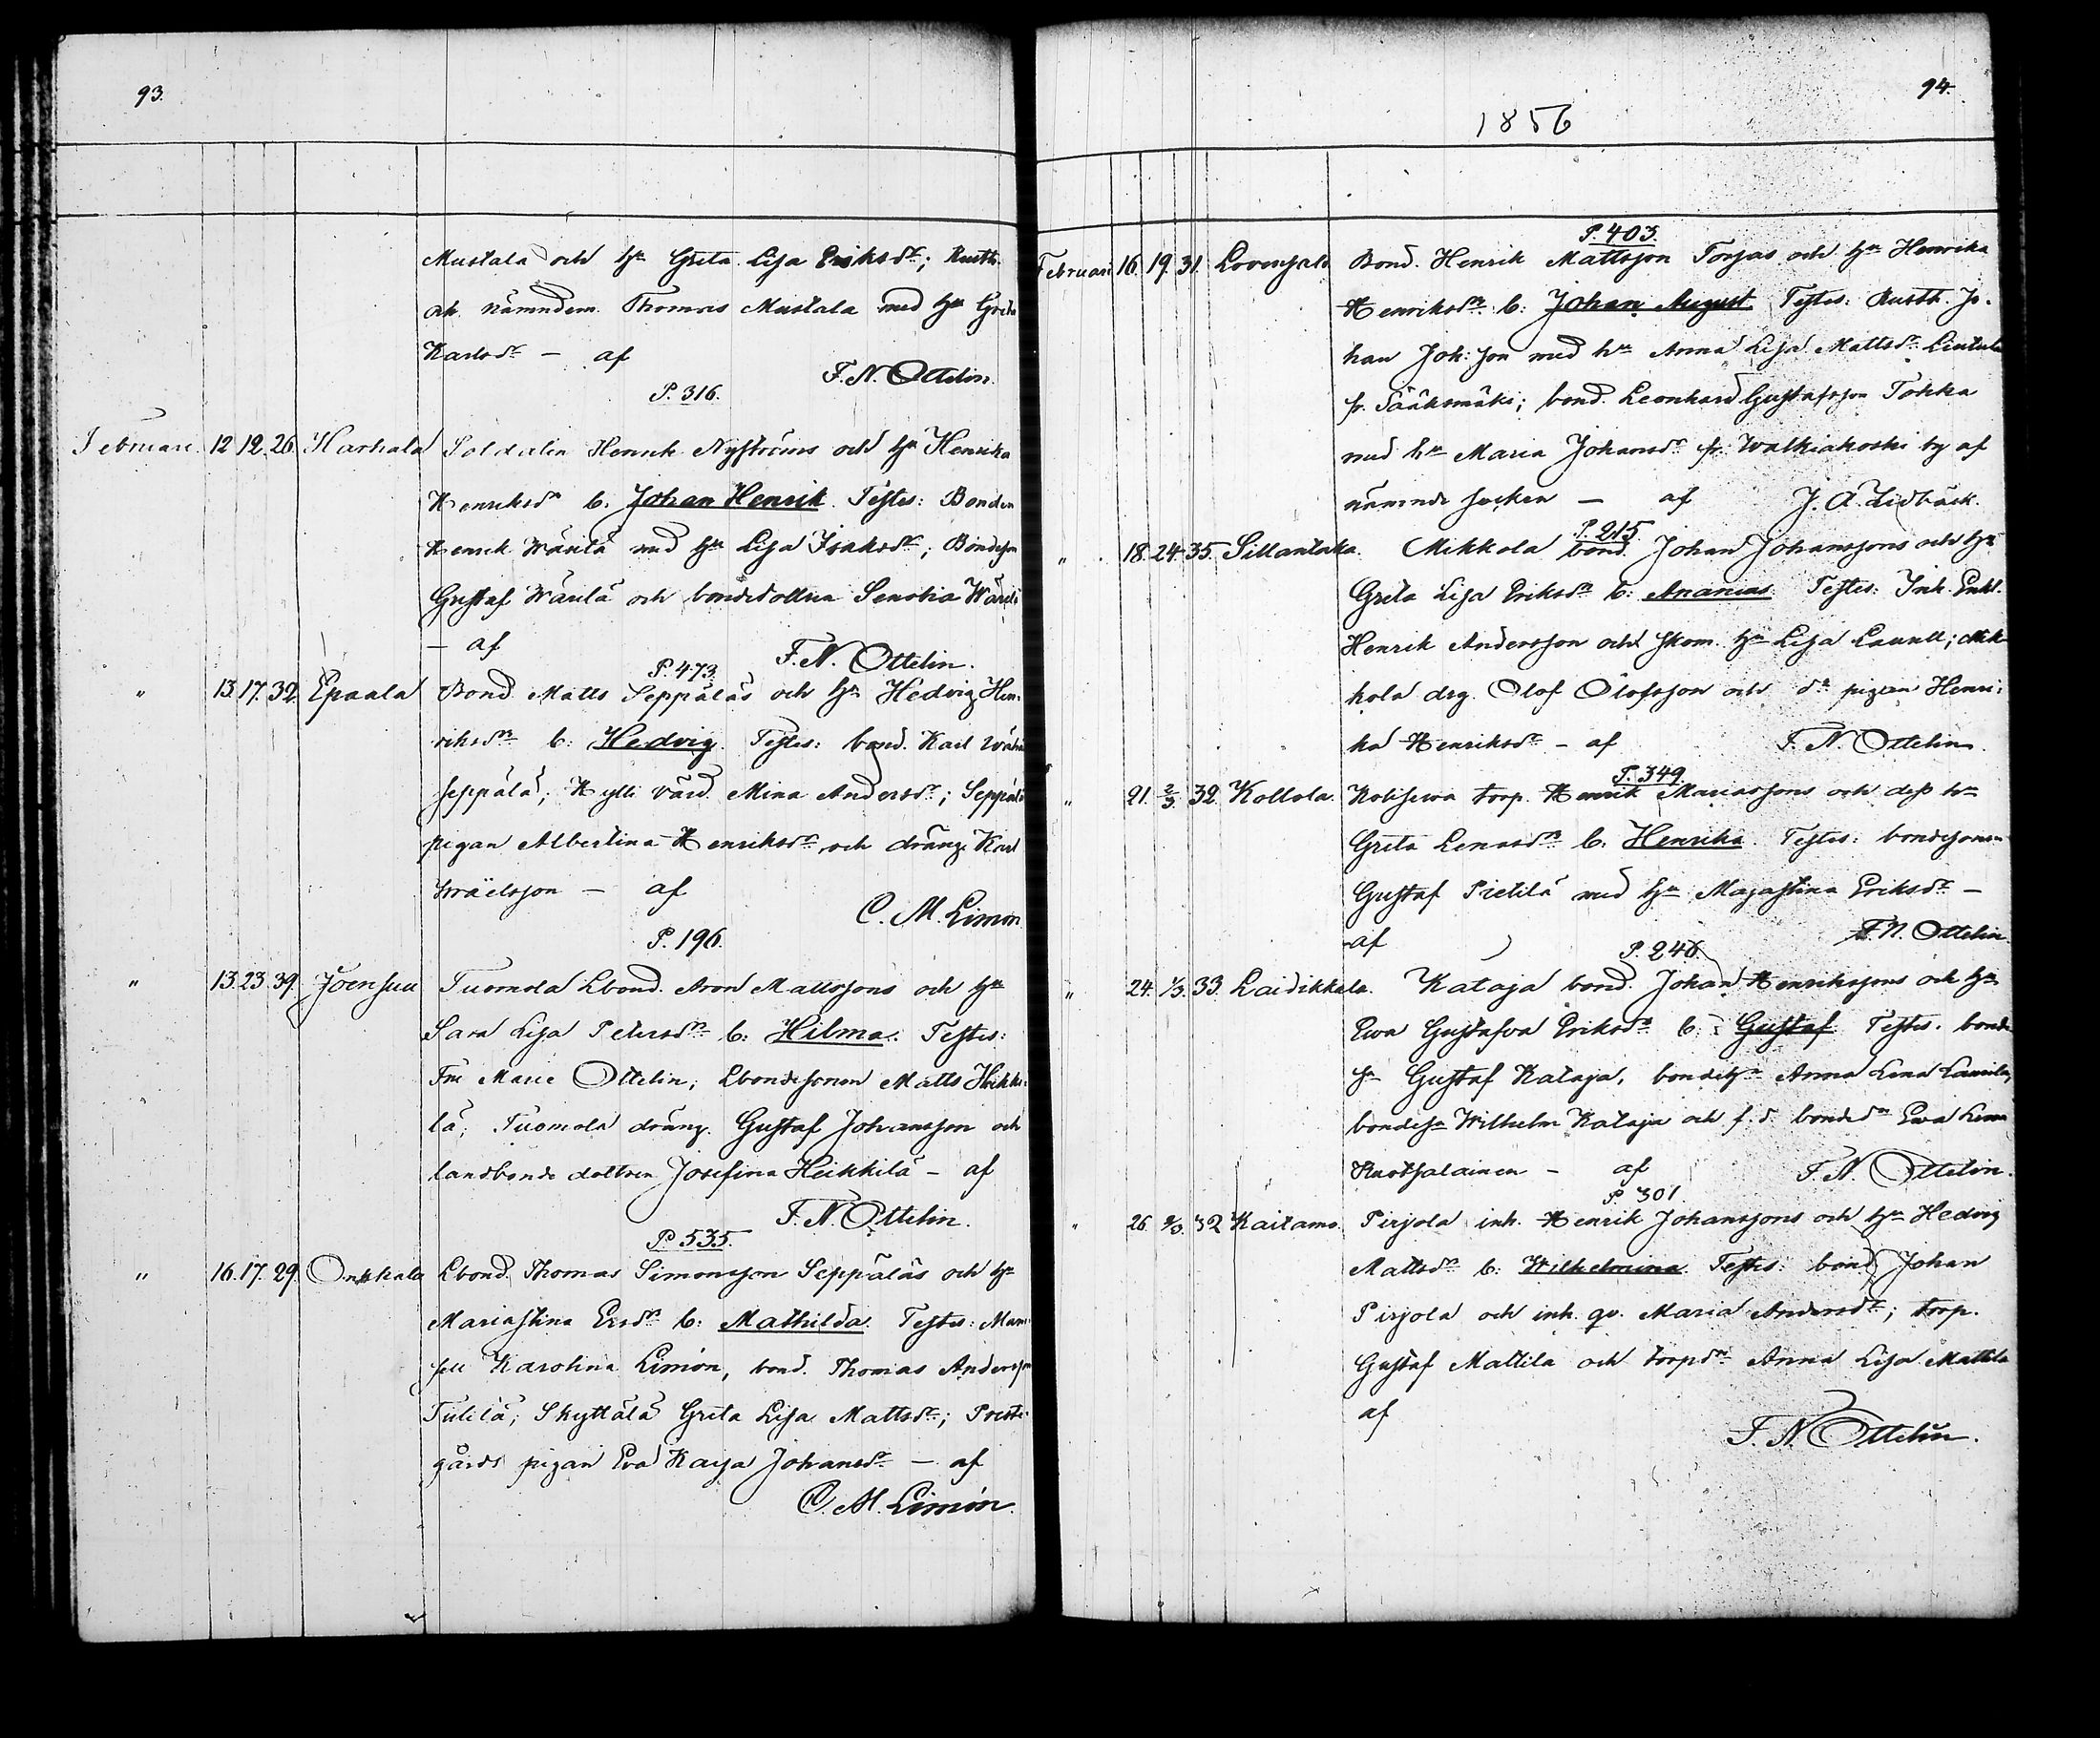 93.
Mustala och hu Greta Lisa Eriksdr; Rusth.
och nämndem. Thomas Mustala med hu Greta
Karlsdr — af
F. N. Ottelin.
P. 316.
Februari. 12 19. 26. Harhala Soldaten Henrik Nyströms och hu Henrika
Henriksdr b. Johan Henrik. Testes: Bonden
Henrik Wärilä med hu Lisa Isaksdr; Bondeson
Gustaf Wärilä och bondedottren Senobia Wärilä
— af F. N. Ottelin.
P. 473.
" 13. 17. 32. Epaala Bond. Matts Seppäläs och hu Hedvig Hen-
riksdr b: Hedvig. Testes: bond. Karl
Seppälä; Kylli värd. Mina Andersdr; Seppälä
pigan Albertina Henriksdr och dräng. Karl
Israelsson — af
C. M. Limón
P. 196.
" 13. 23. 39. Joensuu Tuomola Lbond. Aron Mattssons och hu
Sara Lisa Petersdr b: Hilma. Testes:
Fru Marie Ottelin; Lbondesonen Matts Heikki-
lä; Tuomola dräng. Gustaf Johansson och
landbonde dottren Josefina Heikkilä — af
F. N. Ottelin.
P. 535.
" 16. 17. 29. Onkkala Lbond. Thomas Simonsson Seppäläs och hu
Mariastina Ersdr b: Mathilda. Testes: Mam-
sell Karolina Limón, bond. Thomas Andersson
Tulilä; Skyttälä Greta Lisa Mattsdr; Prest-
gårds pigan Eva Kaisa Johansdr — af
C. M. Limón.
94.
1856
P. 403.
Februari 16. 19. 31. Bond. Henrik Mattsson Torjas och hu Henrika
Henriksdr b: Johan August. Testes: Rusth. Jo-
han Joh:son med hu Anna Lisa Mattsdr Liutula
fr. Sääksmäki; bond. Leonhard Gustafsson Tokka
med hu Maria Johansdr fr. Walkiakoski by af
nämnde socken — af J. A. Lidbäck.
P. 215.
" 18. 24. 35. Sillantaka. Mikkola bond. Johan Johanssons och hu
Greta Lisa Eriksdr b: Ananias. Testes: Inh. Enkl.
Henrik Andersson och skom. hu Lisa Laurell; Mik-
kola drg. Olof Olofsson och dn pigan Henri-
ka Henriksdr — af F. N. Ottelin.
P. 349.
" 21. 2/3. 32. Kollola torp. Henrik Mariassons och dess hu
Greta Lenasdr b. Henrika. Testes: bondesonen
Gustaf Pietilä med hu Magastina Eriksdr —
af F. N. Ottelin.
P. 246.
" 24. 1/3. 33. Laidikkala. Kataja bond. Johan Henrikssons och hu
Ewa Gustafva Eriksdr b: Gustaf. Testes. bonde
sn Gustaf Kataja, bondehu Anna Lena Laurila,
bondesn Wilhelm Kataja och f. d. bondedr Ewa Lena
Ruotsalainen — af F. N. Ottelin.
P. 301.
" 26. 9/3. 32 Kaitamo. Pirjola inh. Henrik Johanssons och hu Hedvig
Mattsdr b: Wilhelmina. Testes: bond. Johan
Pirjola och inh. qv. Maria Andersdr; torp.
Gustaf Mattila och torpdr Anna Lisa Mattila
af
F. N. Ottelin.